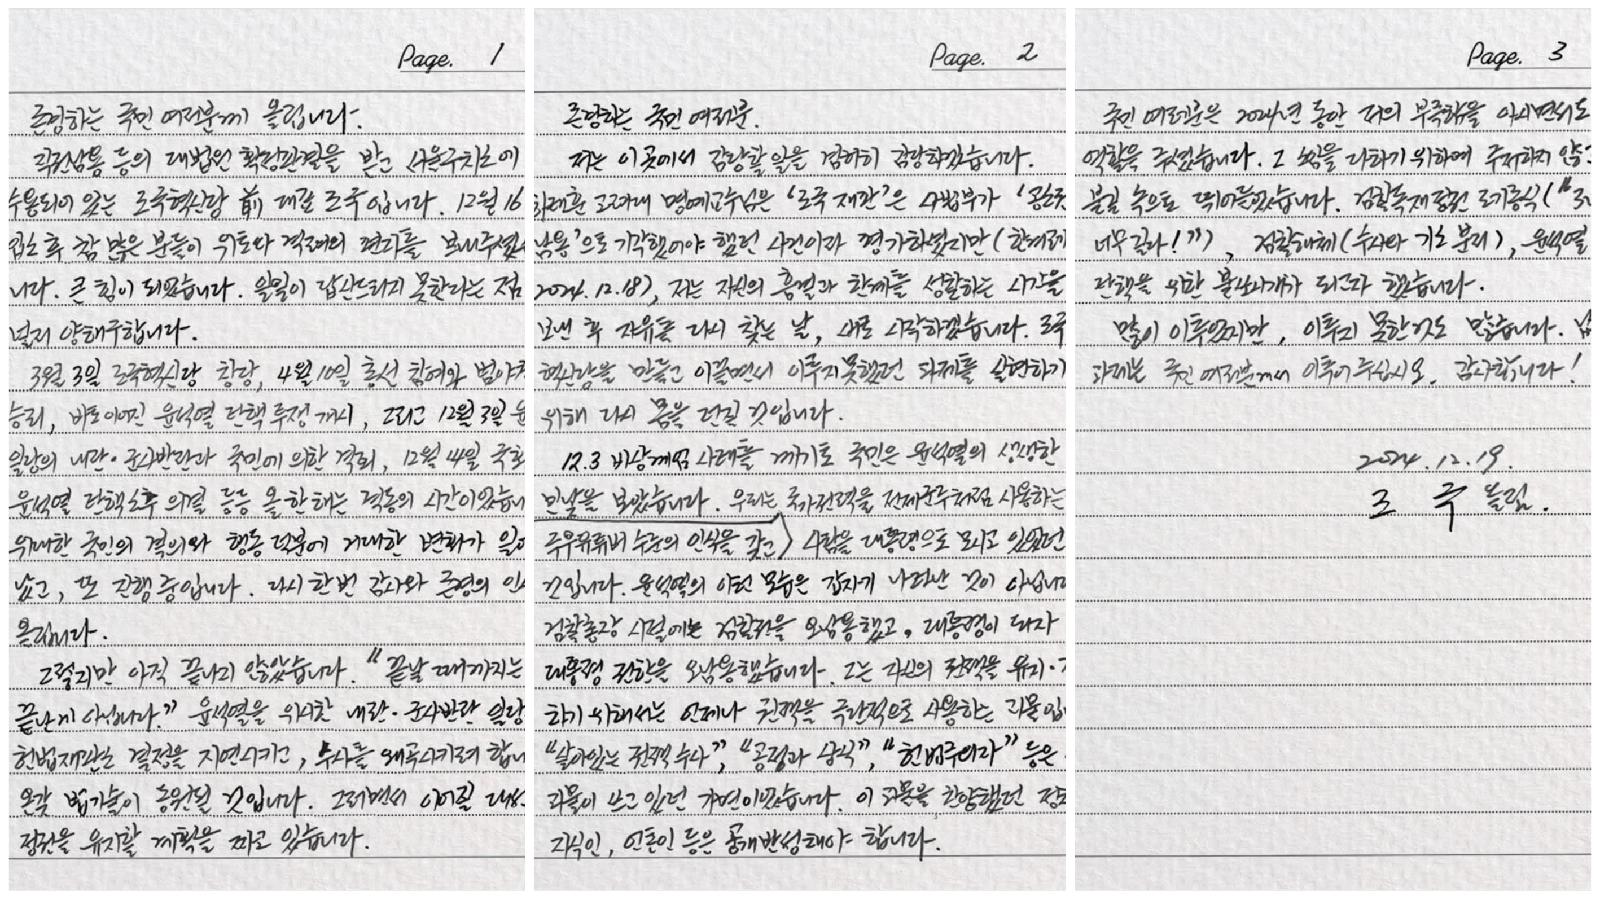 Page. 1
존경하는 국민 여러분께 올립니다.
직권남용 등의 대법원 확정판결을 받고 서울구치소에
수용되어 있는 조국혁신당 前 대표 조국입니다. 12월 16
입소 후 참 많은 분들이 위로와 격려의 편지를 보내주셨습
니다. 큰 힘이 되었습니다. 일일이 답신드리지 못한다는 점
널리 양해구합니다.
3월 3일 조국혁신당 창당, 4월 10일 총선 참여와 범야권
승리, 바로 이어진 윤석열 탄핵 투쟁 개시, 그리고 12월 3일 윤
일당의 내란·군사반란과 국민에 의한 격퇴, 12월 14일 국회
윤석열 탄핵소추 의결 등등 올 한 해는 격동의 시간이었습니
위대한 국민의 결의와 행동 덕분에 거대한 변화가 일어
났고, 또 진행 중입니다. 다시 한번 감사와 존경의 인사
올립니다.
그렇지만 아직 끝나지 않았습니다. "끝날 때까지는
끝난 게 아닙니다." 윤석열을 위시한 내란·군사반란 일당
헌법재판소 결정을 지연시키고, 수사를 왜곡시키려 합니
온갖 법기술이 동원될 것입니다. 그러면서 이어질 대선
정권을 유지할 계획을 짜고 있습니다.
Page. 2
존경하는 국민 여러분.
저는 이 곳에서 감당할 일을 겸허히 감당하겠습니다.
하태훈 고려대 명예교수님은 '조국 재판'은 사법부가 '공소권
남용'으로 기각했어야 했던 사건이라 평가하셨지만(한겨레
2024.12.18), 저는 자신의 흠결과 한계를 성찰하는 시간을
보낸 후 자유를 다시 찾는 날, 새로 시작하겠습니다. 조국
혁신당을 만들고 이끌면서 이루지 못했던 과제를 실현하기
위해 다시 몸을 던질 것입니다.
12.3 비상계엄 사태를 계기로 국민은 윤석열의 생생한
민낯을 보았습니다. 우리는 국가권력을 전제군주처럼 사용하는
극우유튜버 수준의 인식을 갖고 사람을 대통령으로 모시고 있었던
것입니다. 윤석열의 이런 모습은 갑자기 나타난 것이 아닙니다
검찰총장 시절에는 검찰권을 오남용했고, 대통령이 되자
대통령 권한을 오남용했습니다. 그는 자신의 권력을 유지·
하기 위해서는 언제나 권력을 극단적으로 사용하는 괴물입
"살아있는 권력 수사", "공정과 상식", "헌법주의자" 등은
괴물이 쓰고 있던 가면이었습니다. 이 괴물을 찬양했던 정치
지식인, 언론인 등은 공개반성해야 합니다.
Page. 3
국민 여러분은 2024년 동안 저의 부족함을 아시면서도
역할을 주셨습니다. 그 쓰임을 다하기 위하여 주저하지 않고
불길 속으로 뛰어들었습니다. 검찰독재정권 조기종식("3년
너무 길다!"), 검찰해체(수사와 기소 분리), 윤석열
탄핵을 위한 불쏘시개가 되고자 했습니다.
많이 이루었지만, 이루지 못한 것도 많습니다. 남
과제는 국민 여러분께서 이루어 주십시오. 감사합니다!
2024. 12. 19.
조 국 올림.